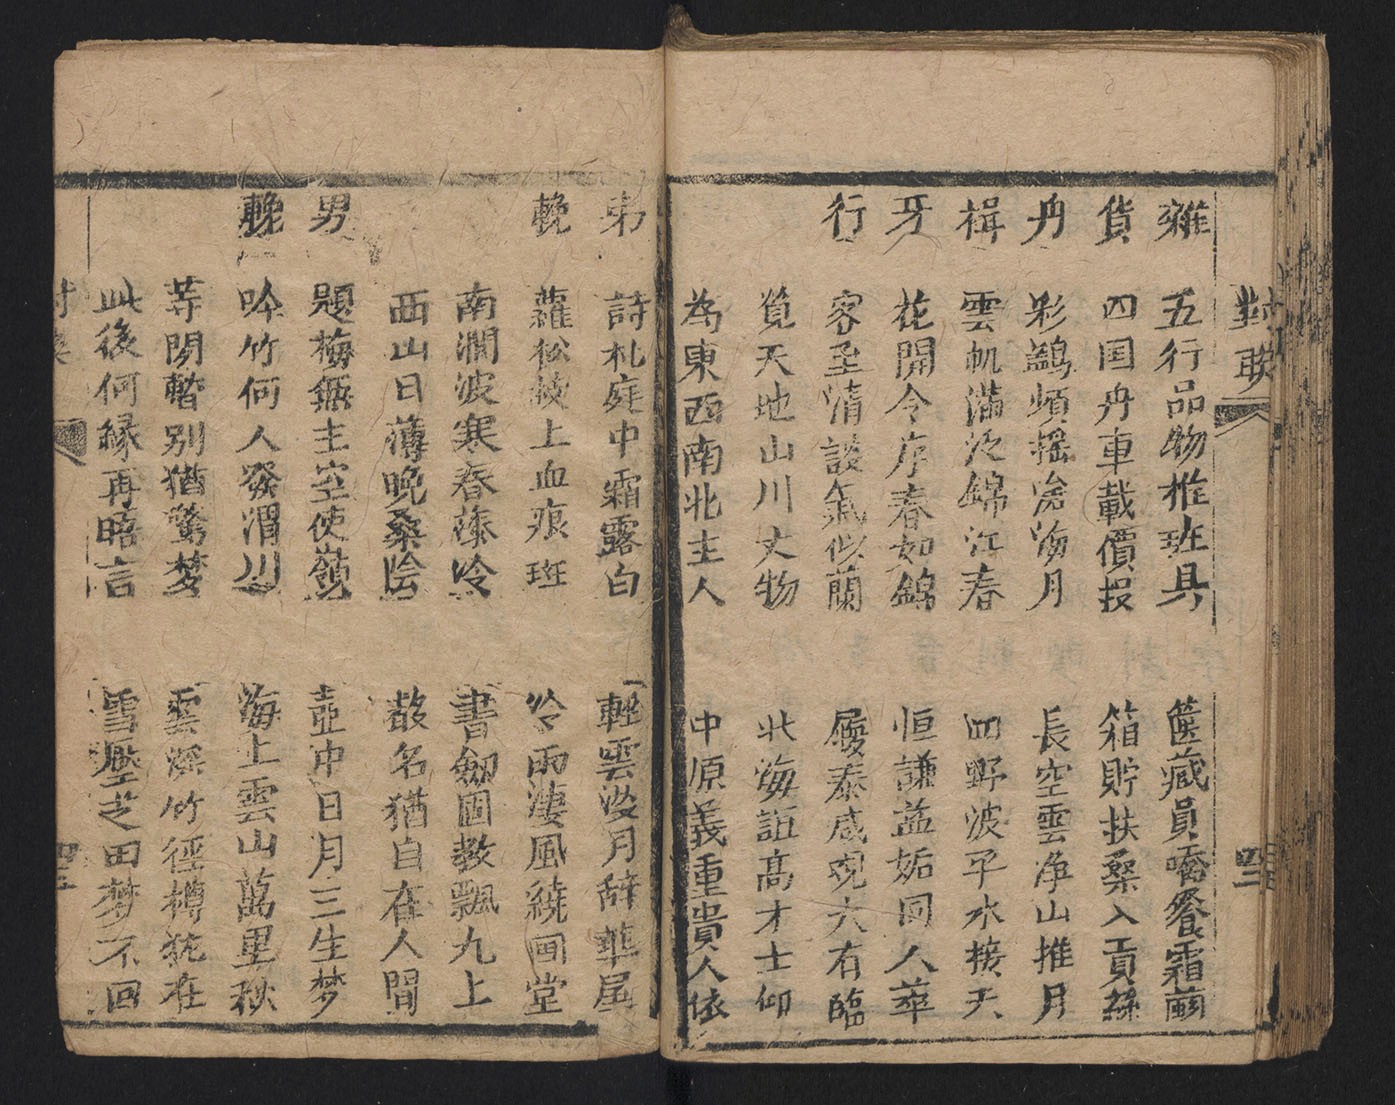 對联
四二
雜 五行品物推班具 篋藏員嶠餐霜繭
貨 四国舟車載價投 箱貯扶桑入貢絲
舟 彩鷁頻摇沧海月 長空雲净山推月
楫 雲帆滿泛錦江春 四野波平水接天
牙 花開令序春如錦 恒謙益姤同人萃
行 客至清談氣似蘭 履泰咸观大有臨
覧天地山川文物 北海誼高才士仰
為東西南北主人 中原義重貴人依
弟 詩札庭中霜露白 輕雲没月辞華屋
輓 蘿松枝上血痕斑 冷雨淒風繞画堂
南澗波寒春藻冷 書劒固教飄九上
西山日薄晚桑陰 故名猶自在人間
男 題梅無主空使嶺 壺中日月三生梦
輓 吟竹何人發渭川 海上雲山萬里秋
等閑暫别猶驚梦 雲深竹徑樽犹在
此後何緣再晤言 雪壓芝田梦不回